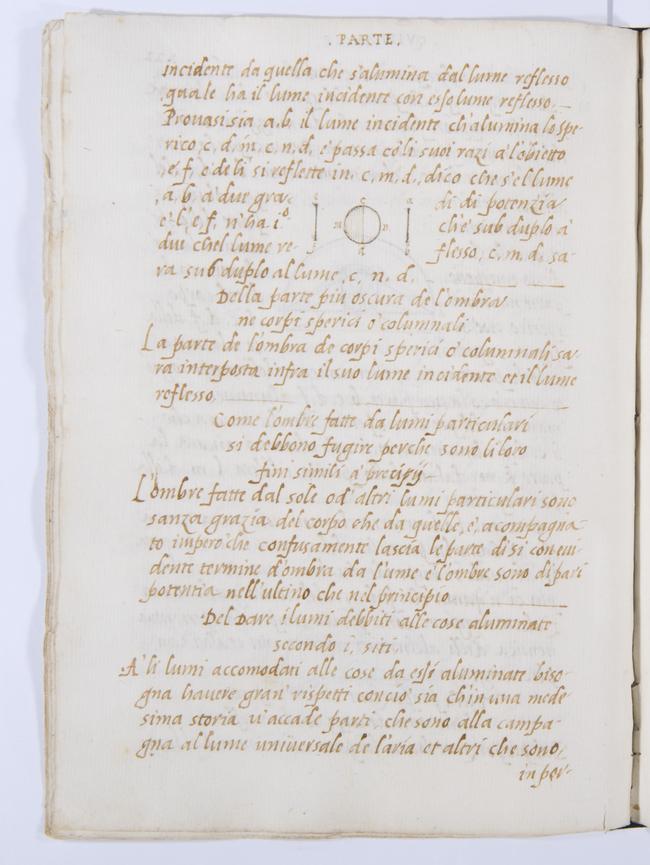 . PARTE .
incidente da quella che s'alumina dal lume reflesso
quale ha il lume incidente con esso lume reflesso.
Provasi sia .a.b. il lume incidente ch'alumina lo spe-
rico .c.d.m.c.n.d. e passa co li suoi razi a l'obietto
.e.f. e de li si reflette in .c.m.d. dico che s'el lume
.a.b. à due gra- di di potenzia
e l'.e.f. n'ha .i.° ch'è sub duplo à
due ch'el lume re- flesso .c.m.d. sa-
ra sub duplo al lume .c.n.d.
Della parte piu oscura de l'ombra
ne corpi sperici o' columnali
La parte de l'ombra de corpi sperici o' columnali sa-
ra interposta infra il suo lume incidente et il lume
reflesso
Come l'ombre fatte da lumi particulari
si debbono fugire perche sono li loro
fini simili a' precipij
L'ombre fatte dal sole od' altri lumi particulari sono
sanza grazia del corpo che da quelle, è, acompagna-
to impero che confusamente lascia le parte di si con evi-
dente termine d'ombra da l'ume e l'ombre sono di pari
potentia nell'ultino che nel principio
Del Dare i lumi debbiti alle cose aluminate
secondo i, siti
A' li lumi accomodati alle cose da essi aluminate biso-
gna havere gran' rispetti concio sia ch'in una mede-
sima storia v'accade parti che sono alla campa-
gna al lume universale de l'aria et altri che sono,
in per-